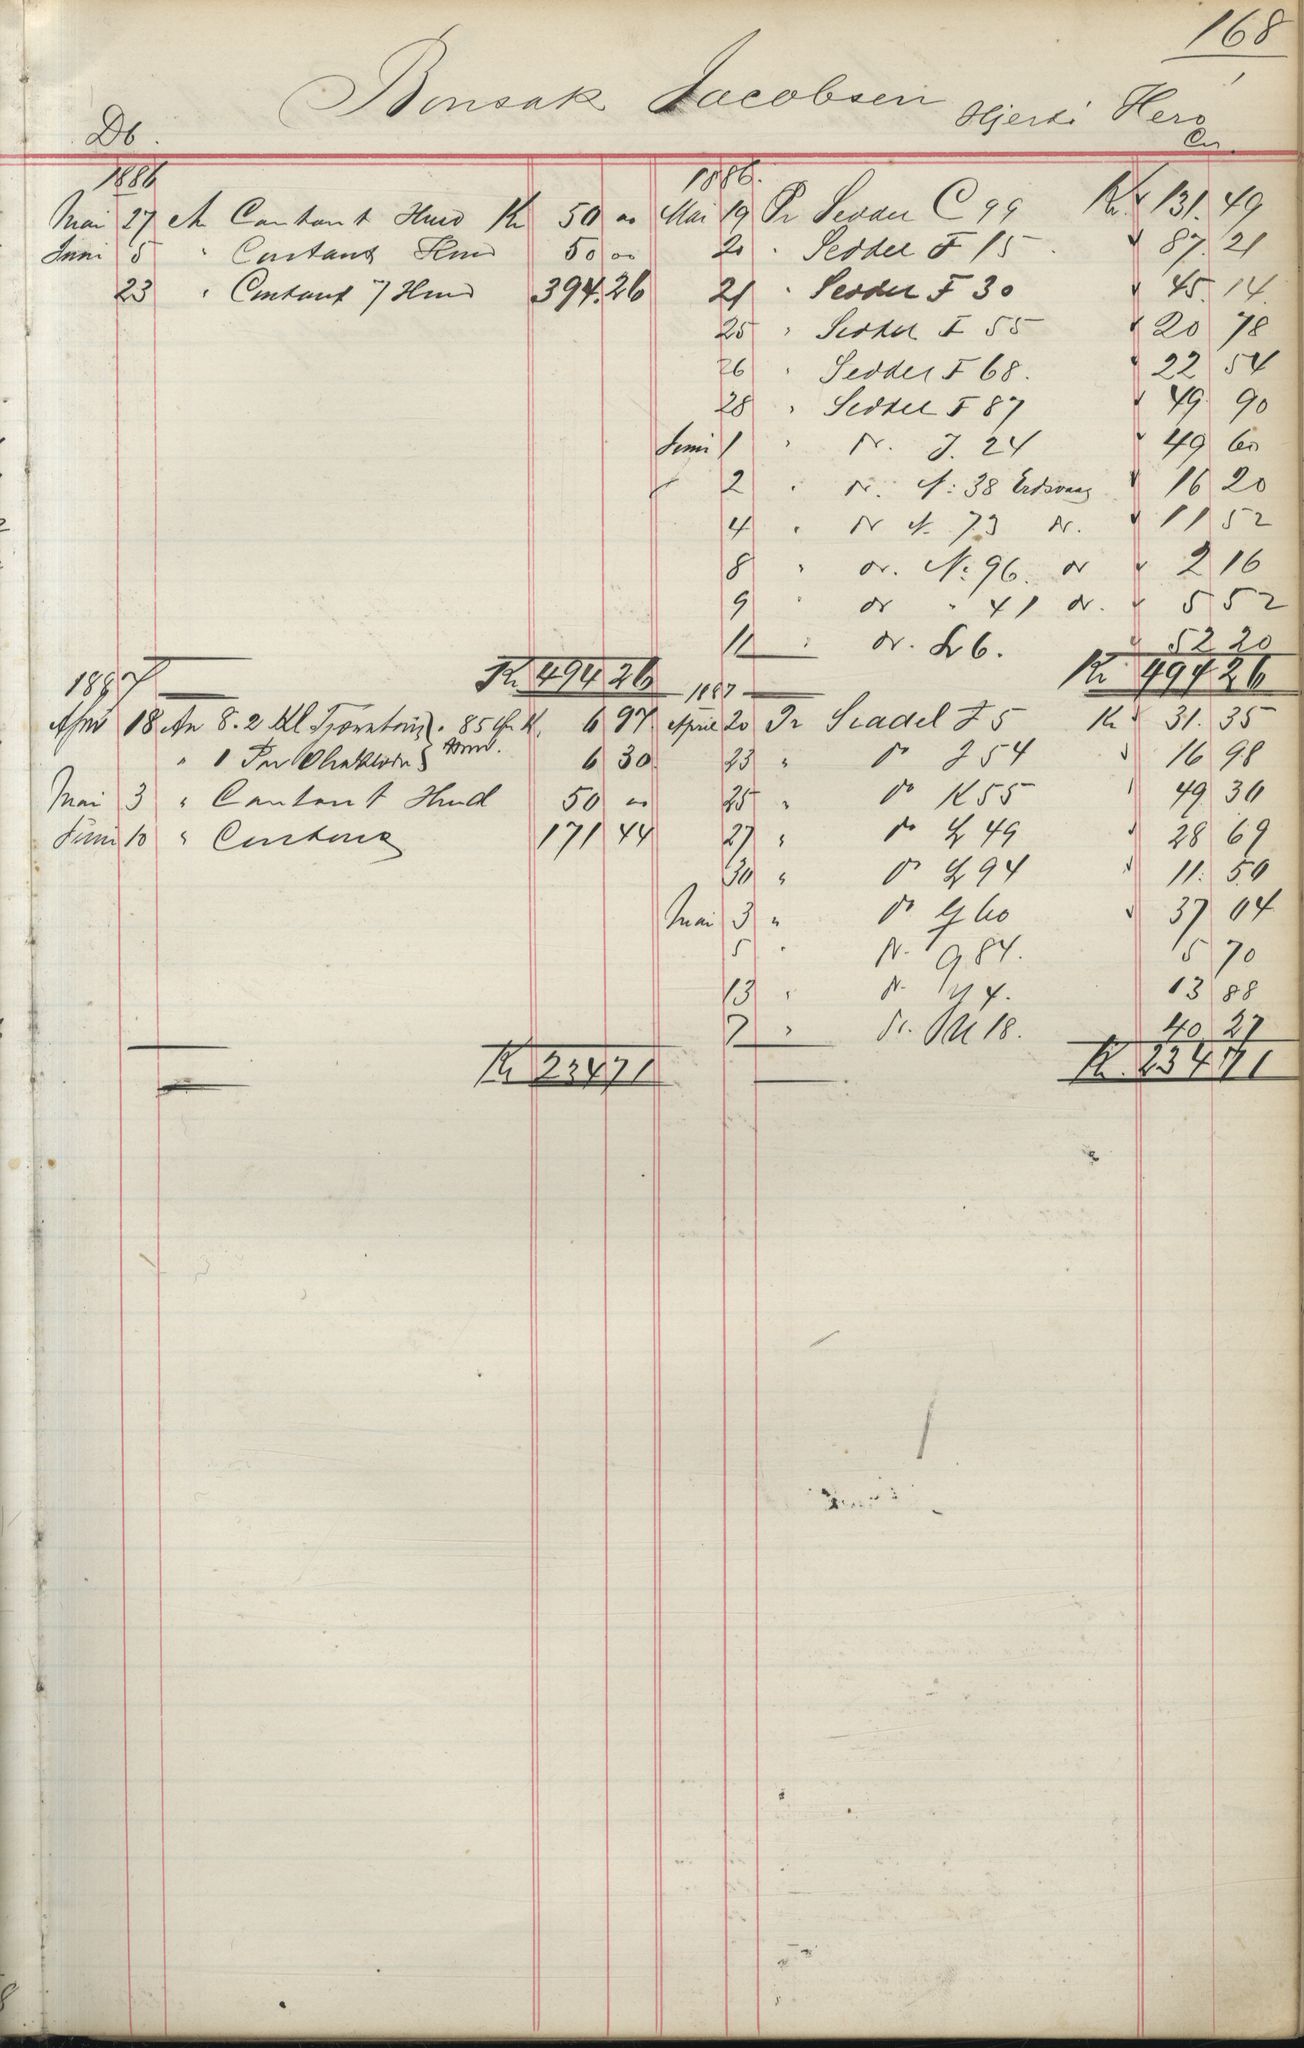 168
Bonsak Jacobsen Herö
Db. Cr.
1886
Mai 27 An Contant Hmd Kr 50 00
Juni 5 " Contant Hmd 50 00
23 " Contant 7 Hmd 394.26
Kr 494 26
1887
April 18 An 8.2 Kl 85 Hmd. 6 97
" 1 Par 6 30
Mai 3 " Contant Hmd 50 00
Juni 10 " Contant 171 44
Kr 234 71
1886.
Mai 19 Pr Seddel C 99 Kr. 131.49
20 " Seddel F 15 87.21
21 " Seddel F 30 45.14
25 " Seddel F 55 20 78
26 " Seddel F 68. 22 54
28 " Seddel F 87 49 90
Juni 1 " Do. J. 24 49 60
2 " Do. N: 38 Erdsvaag 16 20
4 " Do N. 73 Do. 11 52
8 " Do. N: 96. Do 2 16
9 " Do " 41 Do. 5 52
11 " Do. L 6. 52 20
Kr 494 26
1887
April 20 Pr Seadel F 5 Kr 31.35
23 " Do J 54 16 98
25 " Do K 55 49 30
27 " Do L 49 28 69
30 " Do L 94 11.50
Mai 3 " Do G 60 37 04
5 " Do. G 84. 5 70
13 " Do. 4. 13 88
7 " Do. M 18. 40 27
Kr. 234 71